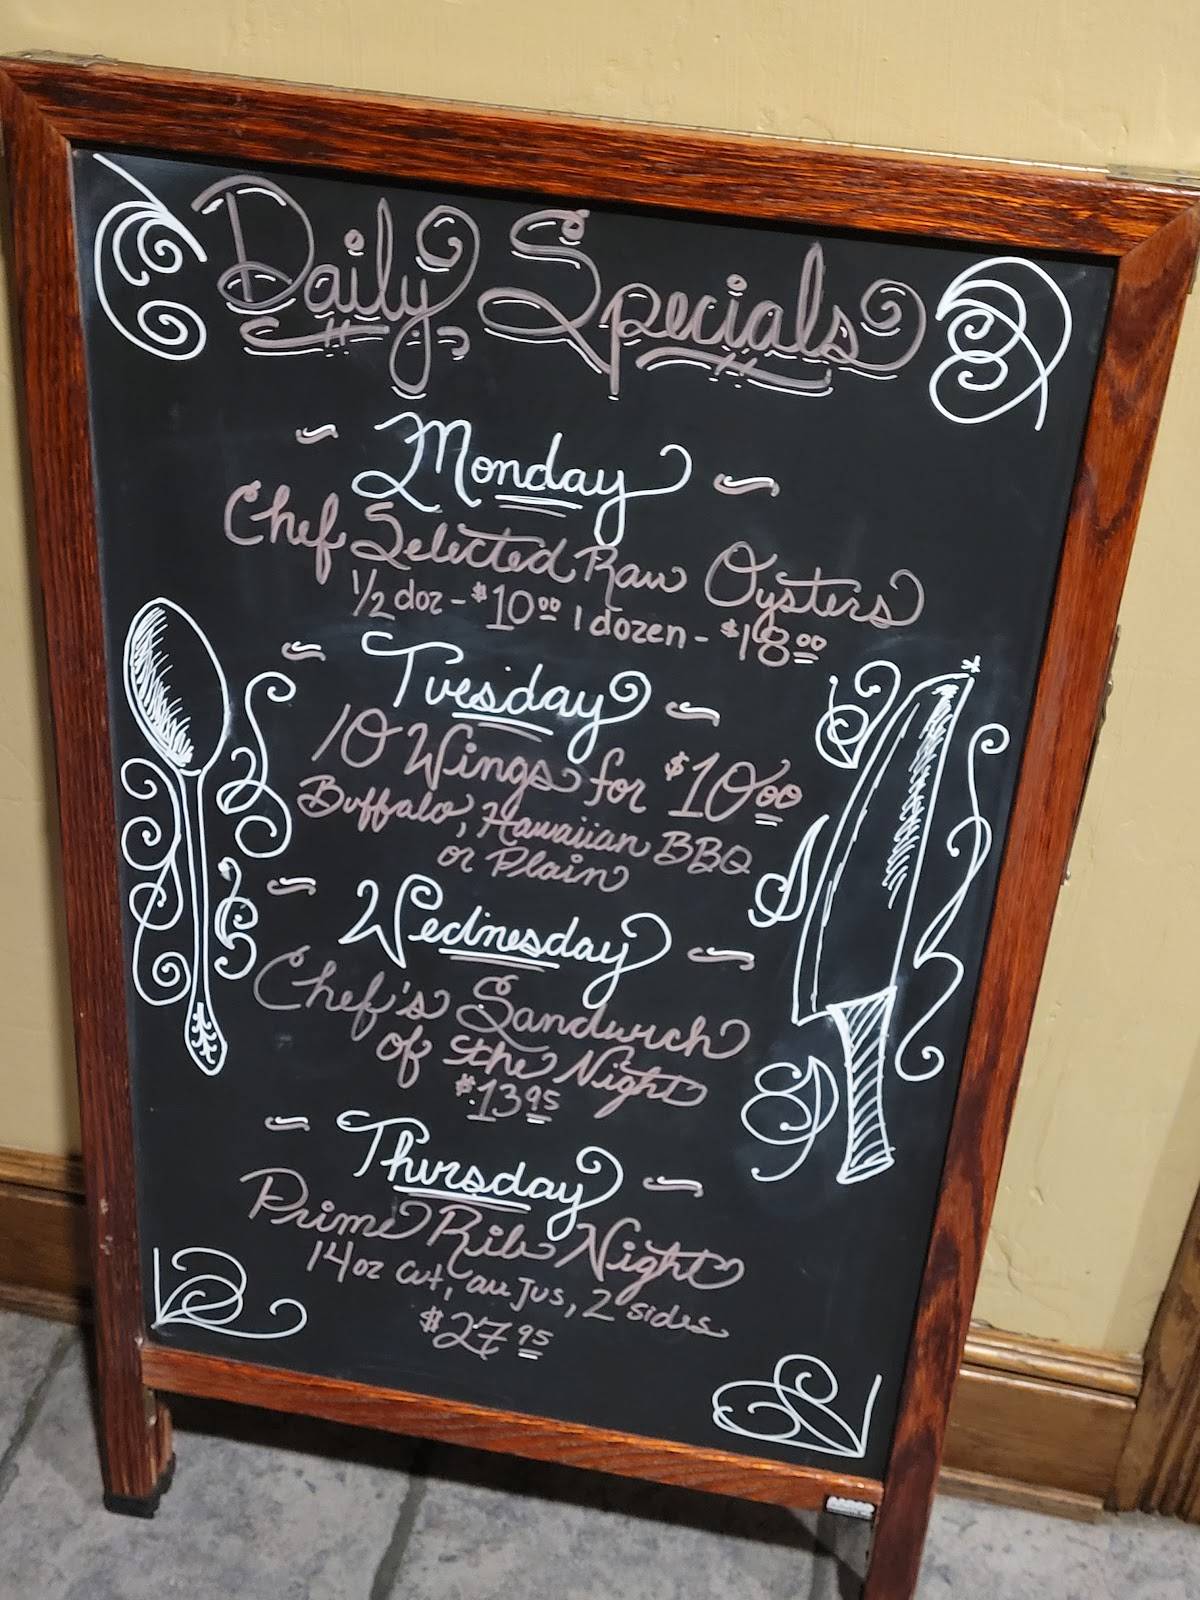 Daily Specials
~ Monday ~
Chef Selected Raw Oysters
1/2 doz - $10.00 1 dozen - $18.00
~ Tuesday ~
10 Wings for $10.00
Buffalo, Hawaiian BBQ
or Plain
~ Wednesday ~
Chef's Sandwich
of the Night
$13.95
~ Thursday ~
Prime Rib Night
14oz cut, au jus, 2 sides
$27.95